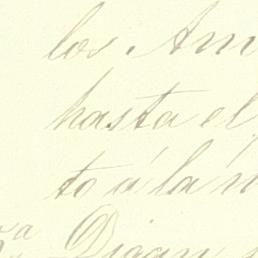 los Am
hasta el
to á la n
Digan